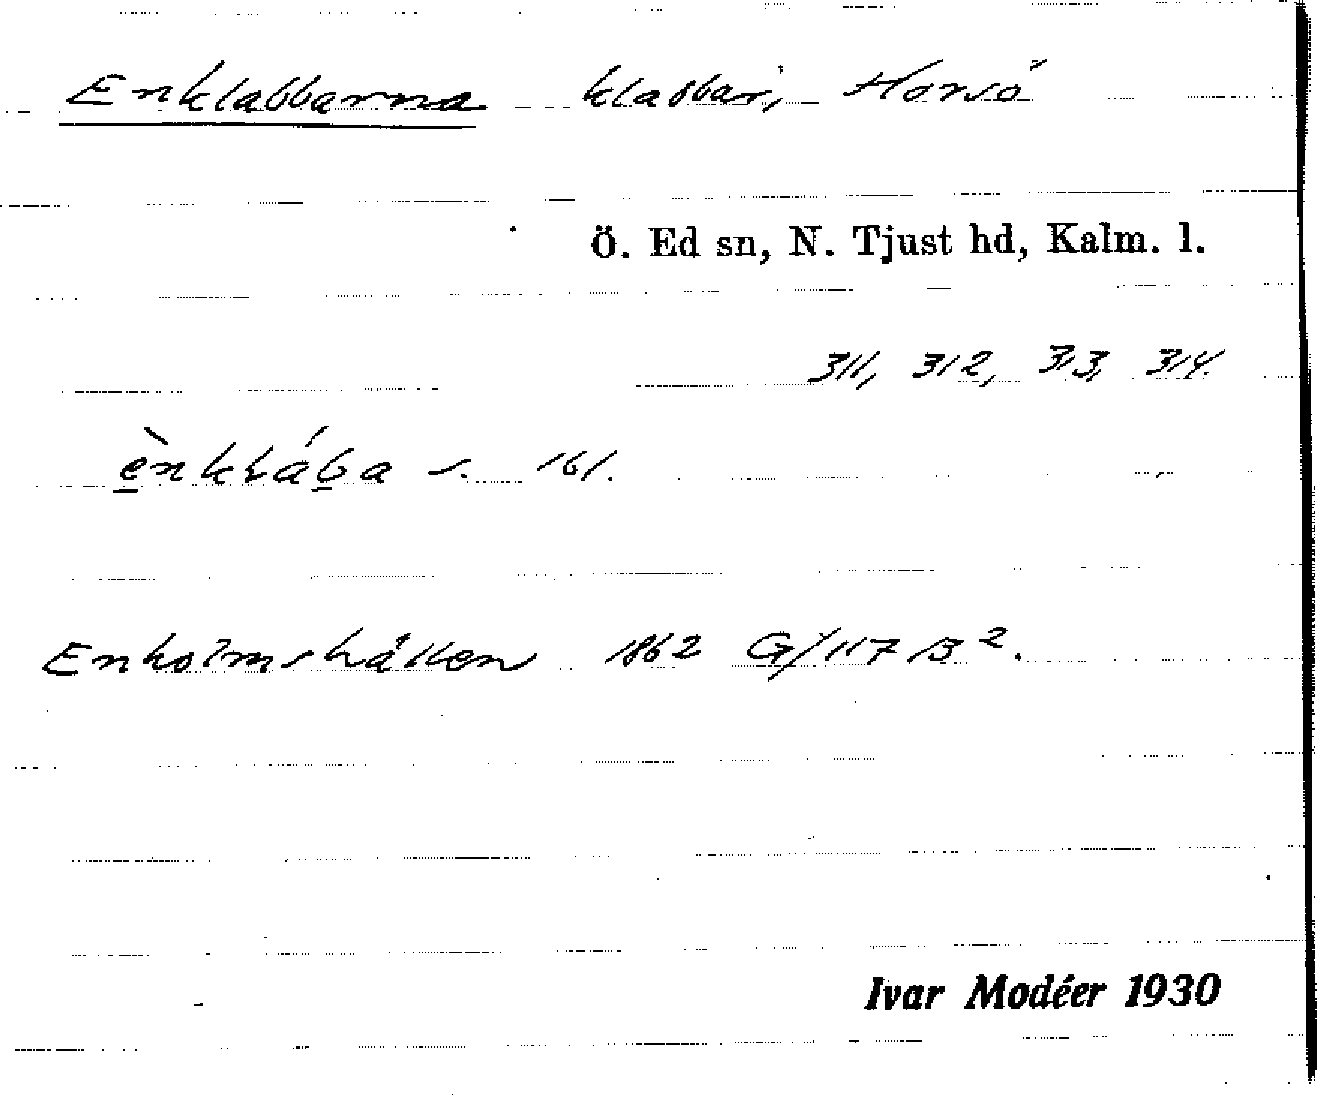 Enklabbarna klabbar, Horsö
Ö. Ed sn, N. Tjust hd, Kalm. l.
311, 312, 313, 314.
s. 161.
Enholmshällen 1862 G/117 B².
Ivar Modéer 1930